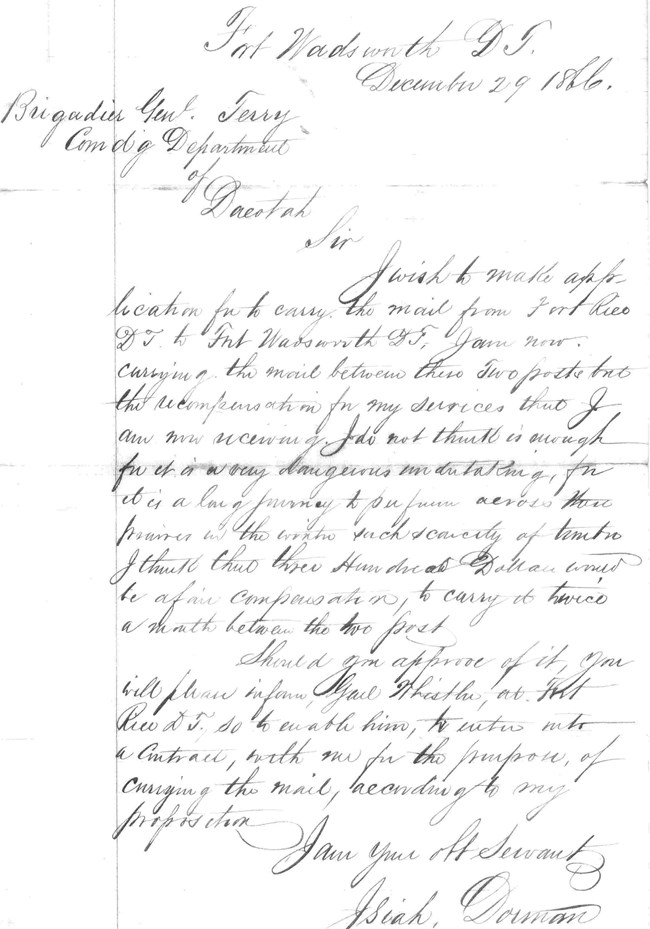 Fort Wadsworth D.T.
December 29 1866.
Brigadier Genl. Terry
Comdg Department
of
Dacotah
Sir
I wish to make app-
lication for to carry the mail from Fort Rice
D.T. to Fort Wadsworth D.T. I am now.
carrying the mail between these two posts but
the recompensation for my services that I
am now receiving. I do not think is enough
for it is a very dangerous undertaking, for
it is a long journey to perform across these
prairies in the winter such scarcity of timber
I think that three Hundred Dollars would
be a fair compensation, to carry it twice
a month between the two post
Should you approve of it, you
will please inform, Genl Whistler, at Fort
Rice D.T. so to enable him, to enter into
a Contract, with me for the purpose, of
carrying the mail, according to my
proposition
I am your obt Servant
Isiah, Dorman